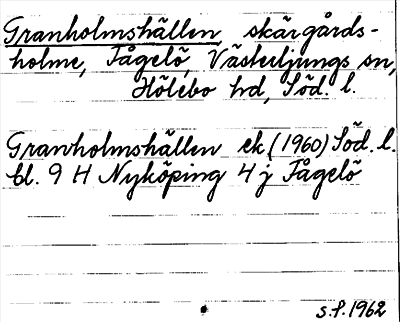 Granholmshällen, skärgårds-
holme, Fågelö, Västerljungs sn,
Hölebo hd, Söd. l.
Granholmshällen ek (1960) Söd. l.
bl. 9 H Nyköping 4 j Fågelö
s.f. 1962